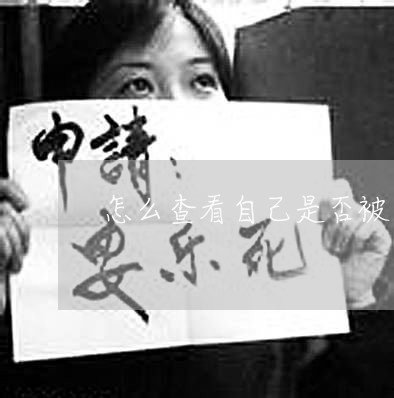 申請：
怎么查看自己是否被
安乐死